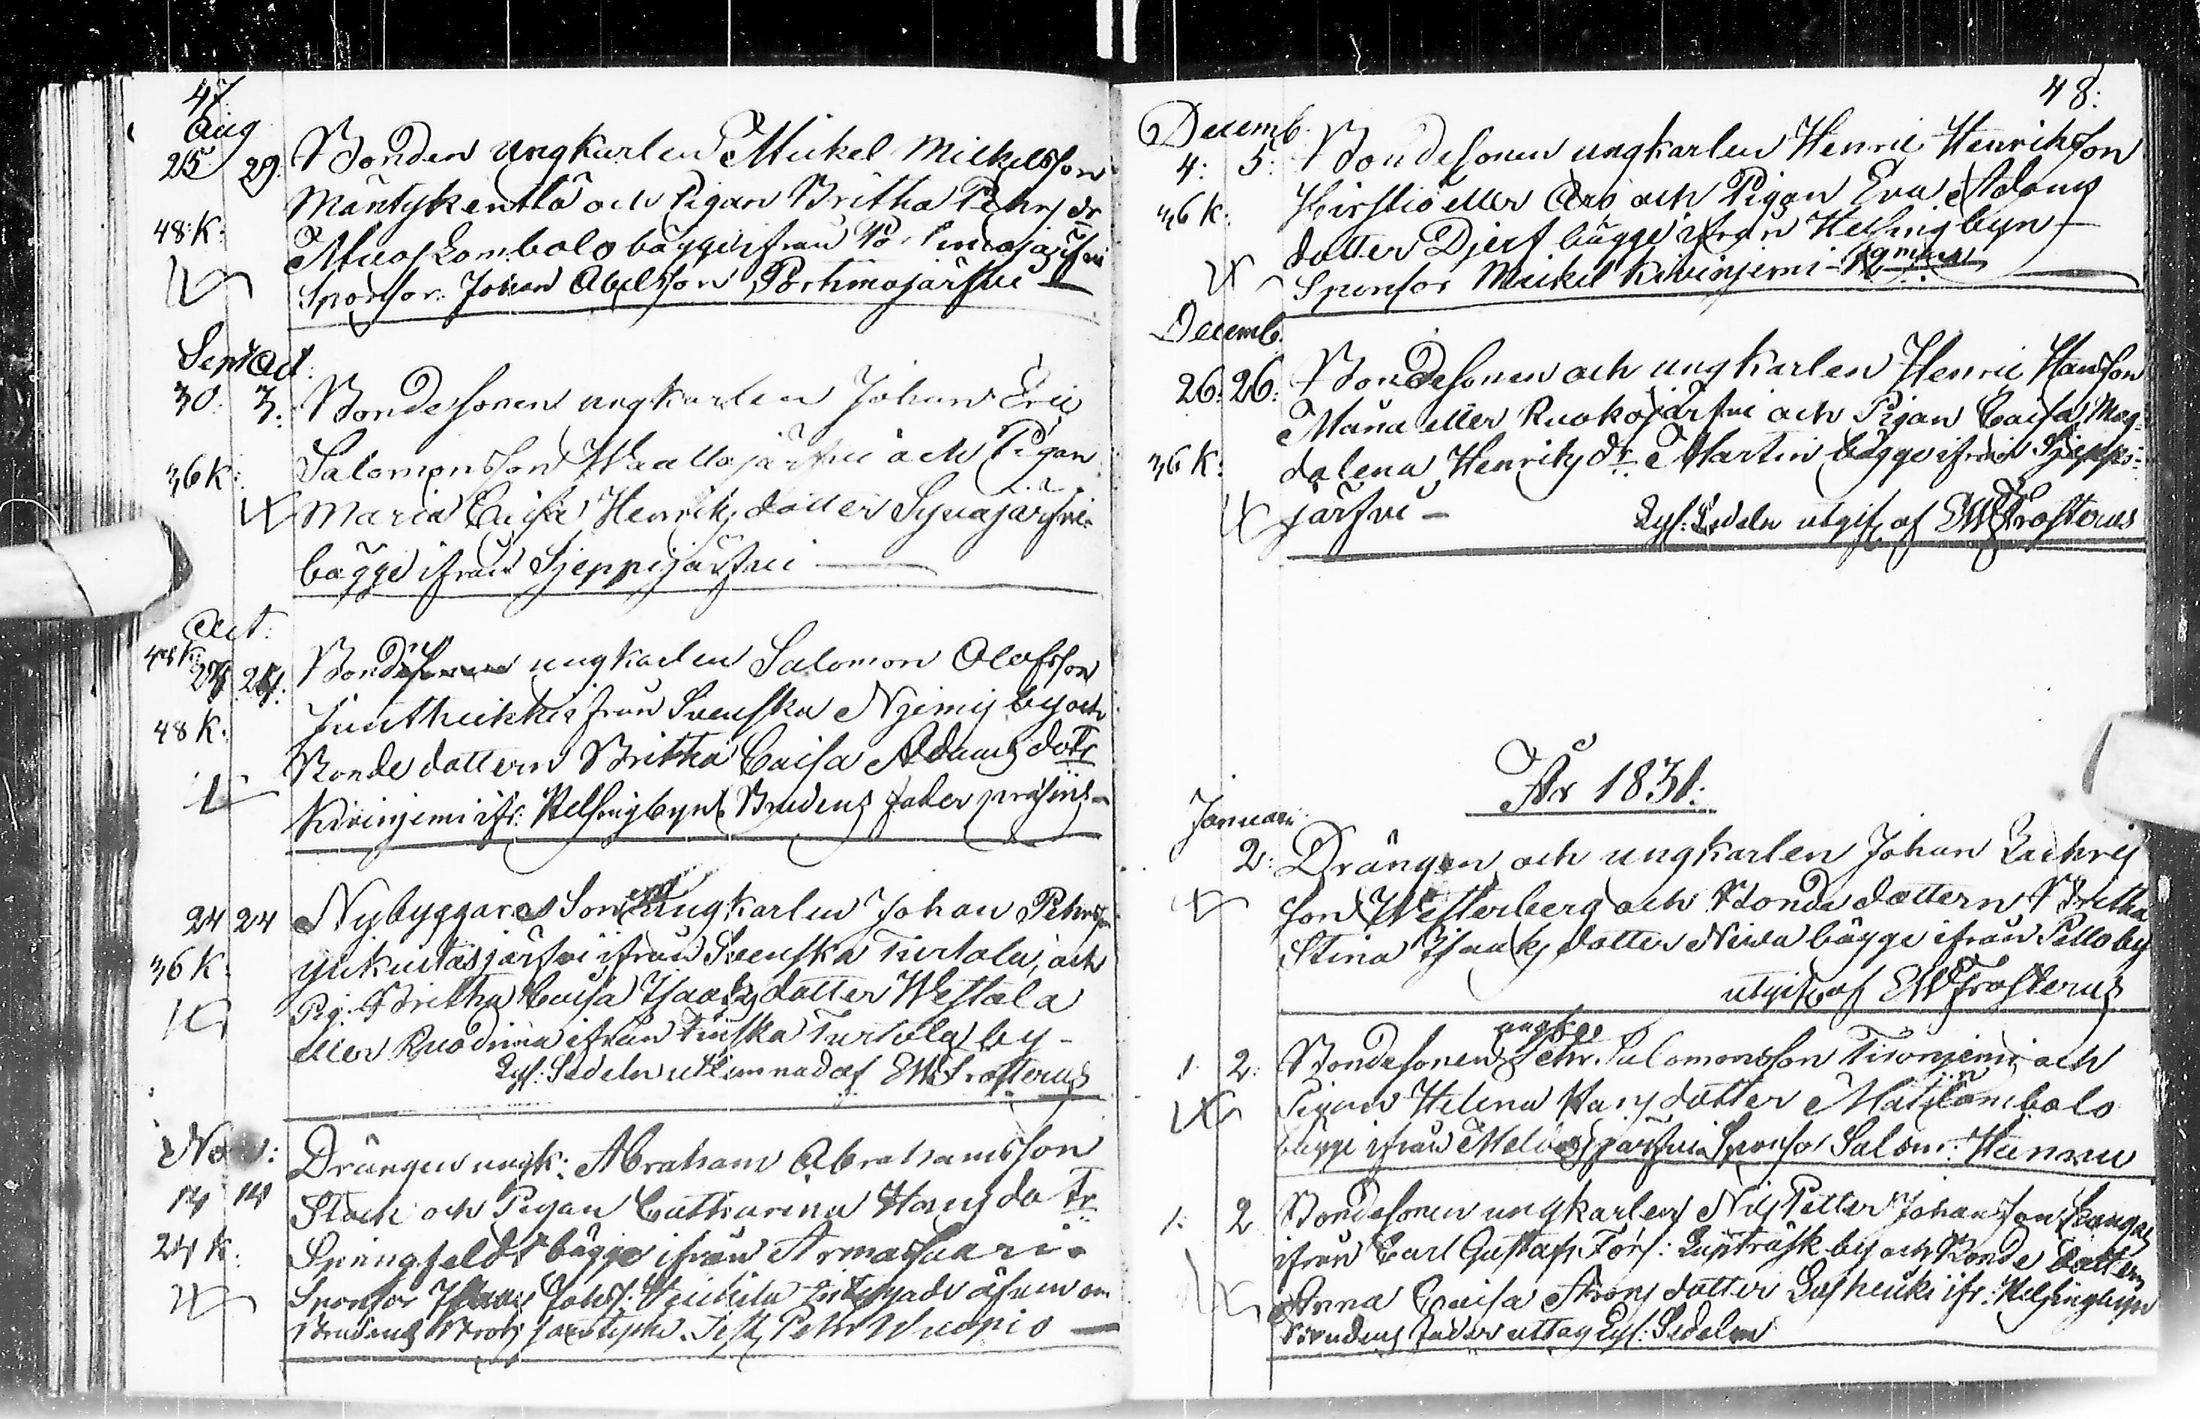 47.
Aug
25 29. Bonden ungkarlen Mickel Mickelsson
Mäntykenttä och Pigan Britha Pehrs dr
48:K: Muoslombolo bägge ifrån Portimojärfwi
Sponsor. Johan Abelsson Portimojärfwi
Sept Oct:
30. 3. Bondesonen ungkarlen Johan Eric
36 k: Salomonsson Waallojärfwi och Pigan
Maria Caisa Henriks dotter Sywajärfwi
bägge ifrån Sjeppijärfwi
Oct:
48 k: 24. Bonden ungkarlen Salomon Olofsson
Juuthuikka ifrån Svenska Niemis by och
48 K: Bonde dottern Britha Caisa Adams dotr
Kivinjemi ifr: Helsingbyn. Brudens fader
24 24 Nybyggares Son ungkarlen Johan Pehrsson
36 K. ifrån Svenska Turtola, och
Pig: Britha Caisa Isaaks dotter Westola
eller ifrån Finska Turtola by-
Lys: Sedeln utlemnad af EW Frosterus
Nov:
14 14 Drängen ungk: Abraham Abrahamsson
Stock och Pigan Catharina Hans dotr
24 k: Springfeldt bägge ifrån Armassaari.
Sponsor Johs:
Brudens Pehr Kuopio
48:
Decemb.
4: 5: Bondesonen ungkarlen Henric Henriksson
36 k: Hirstiö eller Aro och Pigan Eva Adams
dotter Djerf bägge ifrån Helsingbyn
Sponsor Mickel Kivinjemi
Decemb.
26: 26: Bondesonen och ungkarlen Henric Hansson
Mana eller Ruokojärfwi och Pigan Caisa Mag-
36 K: dalena Henriks dr Martin bägge ifrån Sjeppi-
järfwi - Lys: Sedeln utgif. af EW Frosterus
År 1831:
Januari
2: Drängen och ungkarlen Johan Zachris
son Westerberg och Bonde dottern Britha
Stina Isaaks dotter Niwa bägge ifrån Pello by
utgif. af EW Frosterus
ungk:
1. 2. Bondesonen Pehr Salomonsson Tuonjemi och
Pigan Helena Hans dotter Matzlombolo
bägge ifrån Meldosjärfwi Sponsor Salom: Hannu
1. 2 Bondesonen ungkarlen Nils Petter Johansson Kangas
ifrån Carl Gustafs Förs: Lapträsk by och Bonde dottern
Anna Caisa Arons dotter ifr: Helsingbyn
Brudens fader uttog Lys: Sedeln